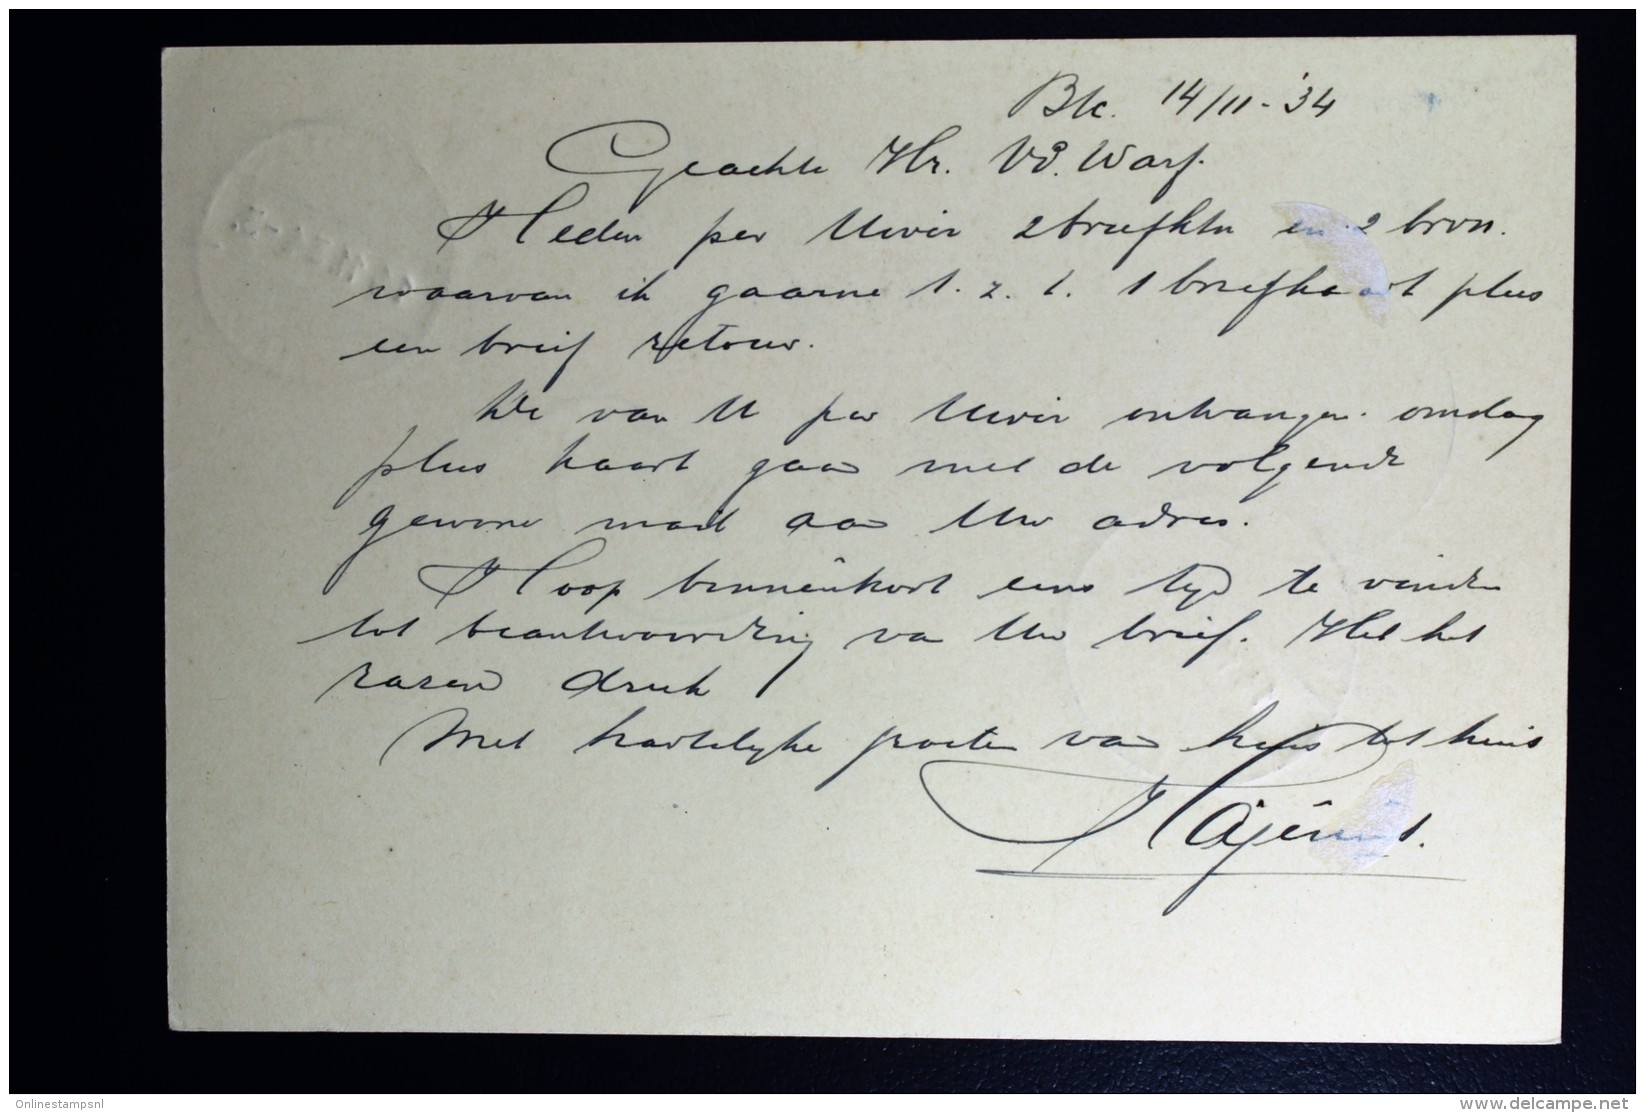 Btc. 14/11-'34
Geachte Hr. Vd. Warf.
Heden per Uiver 2 briefktn en 2 brvn.
waarvan ik gaarne t.z.t. 1 briefkaart plus
een brief retour.
De van U per Uiver ontvangen omslag
plus kaart gaan met de volgende
gewone mail aan Uw adres.
Hoop binnenkort eens tijd te vinden
tot beantwoording van Uw brief. Heb het
razend druk
Met hartelijke groeten van huis tot huis
Onlinestampsnl
www.delcampe.net